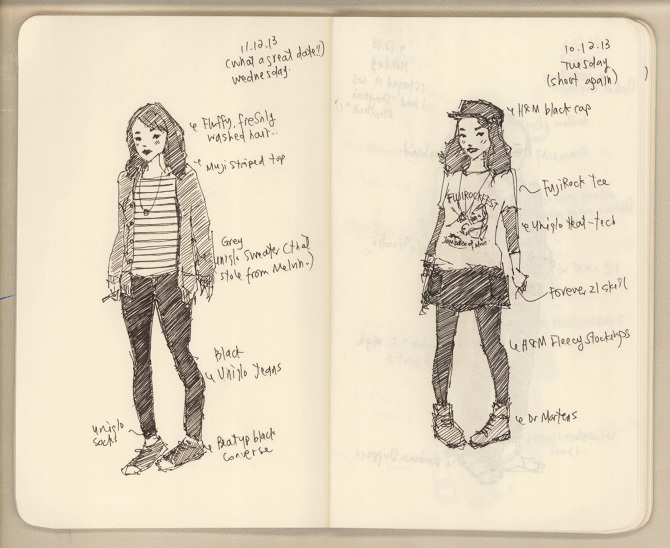 11.12.13
(what a great date!!)
Wednesday.
Fluffy, freshly
washed hair..
Muji striped top
Grey
uniqlo sweater (that I
stole from Melvin.)
Black
Uniqlo Jeans
uniqlo
socks
Beat up black
converse
10.12.13
Tuesday
(short again)
H&M black cap
FujiRock Tee
FUJIROCKFEST
Uniqlo Heat-tech
Forever 21 skirt
H&M Fleecy Stockings
Dr Martens